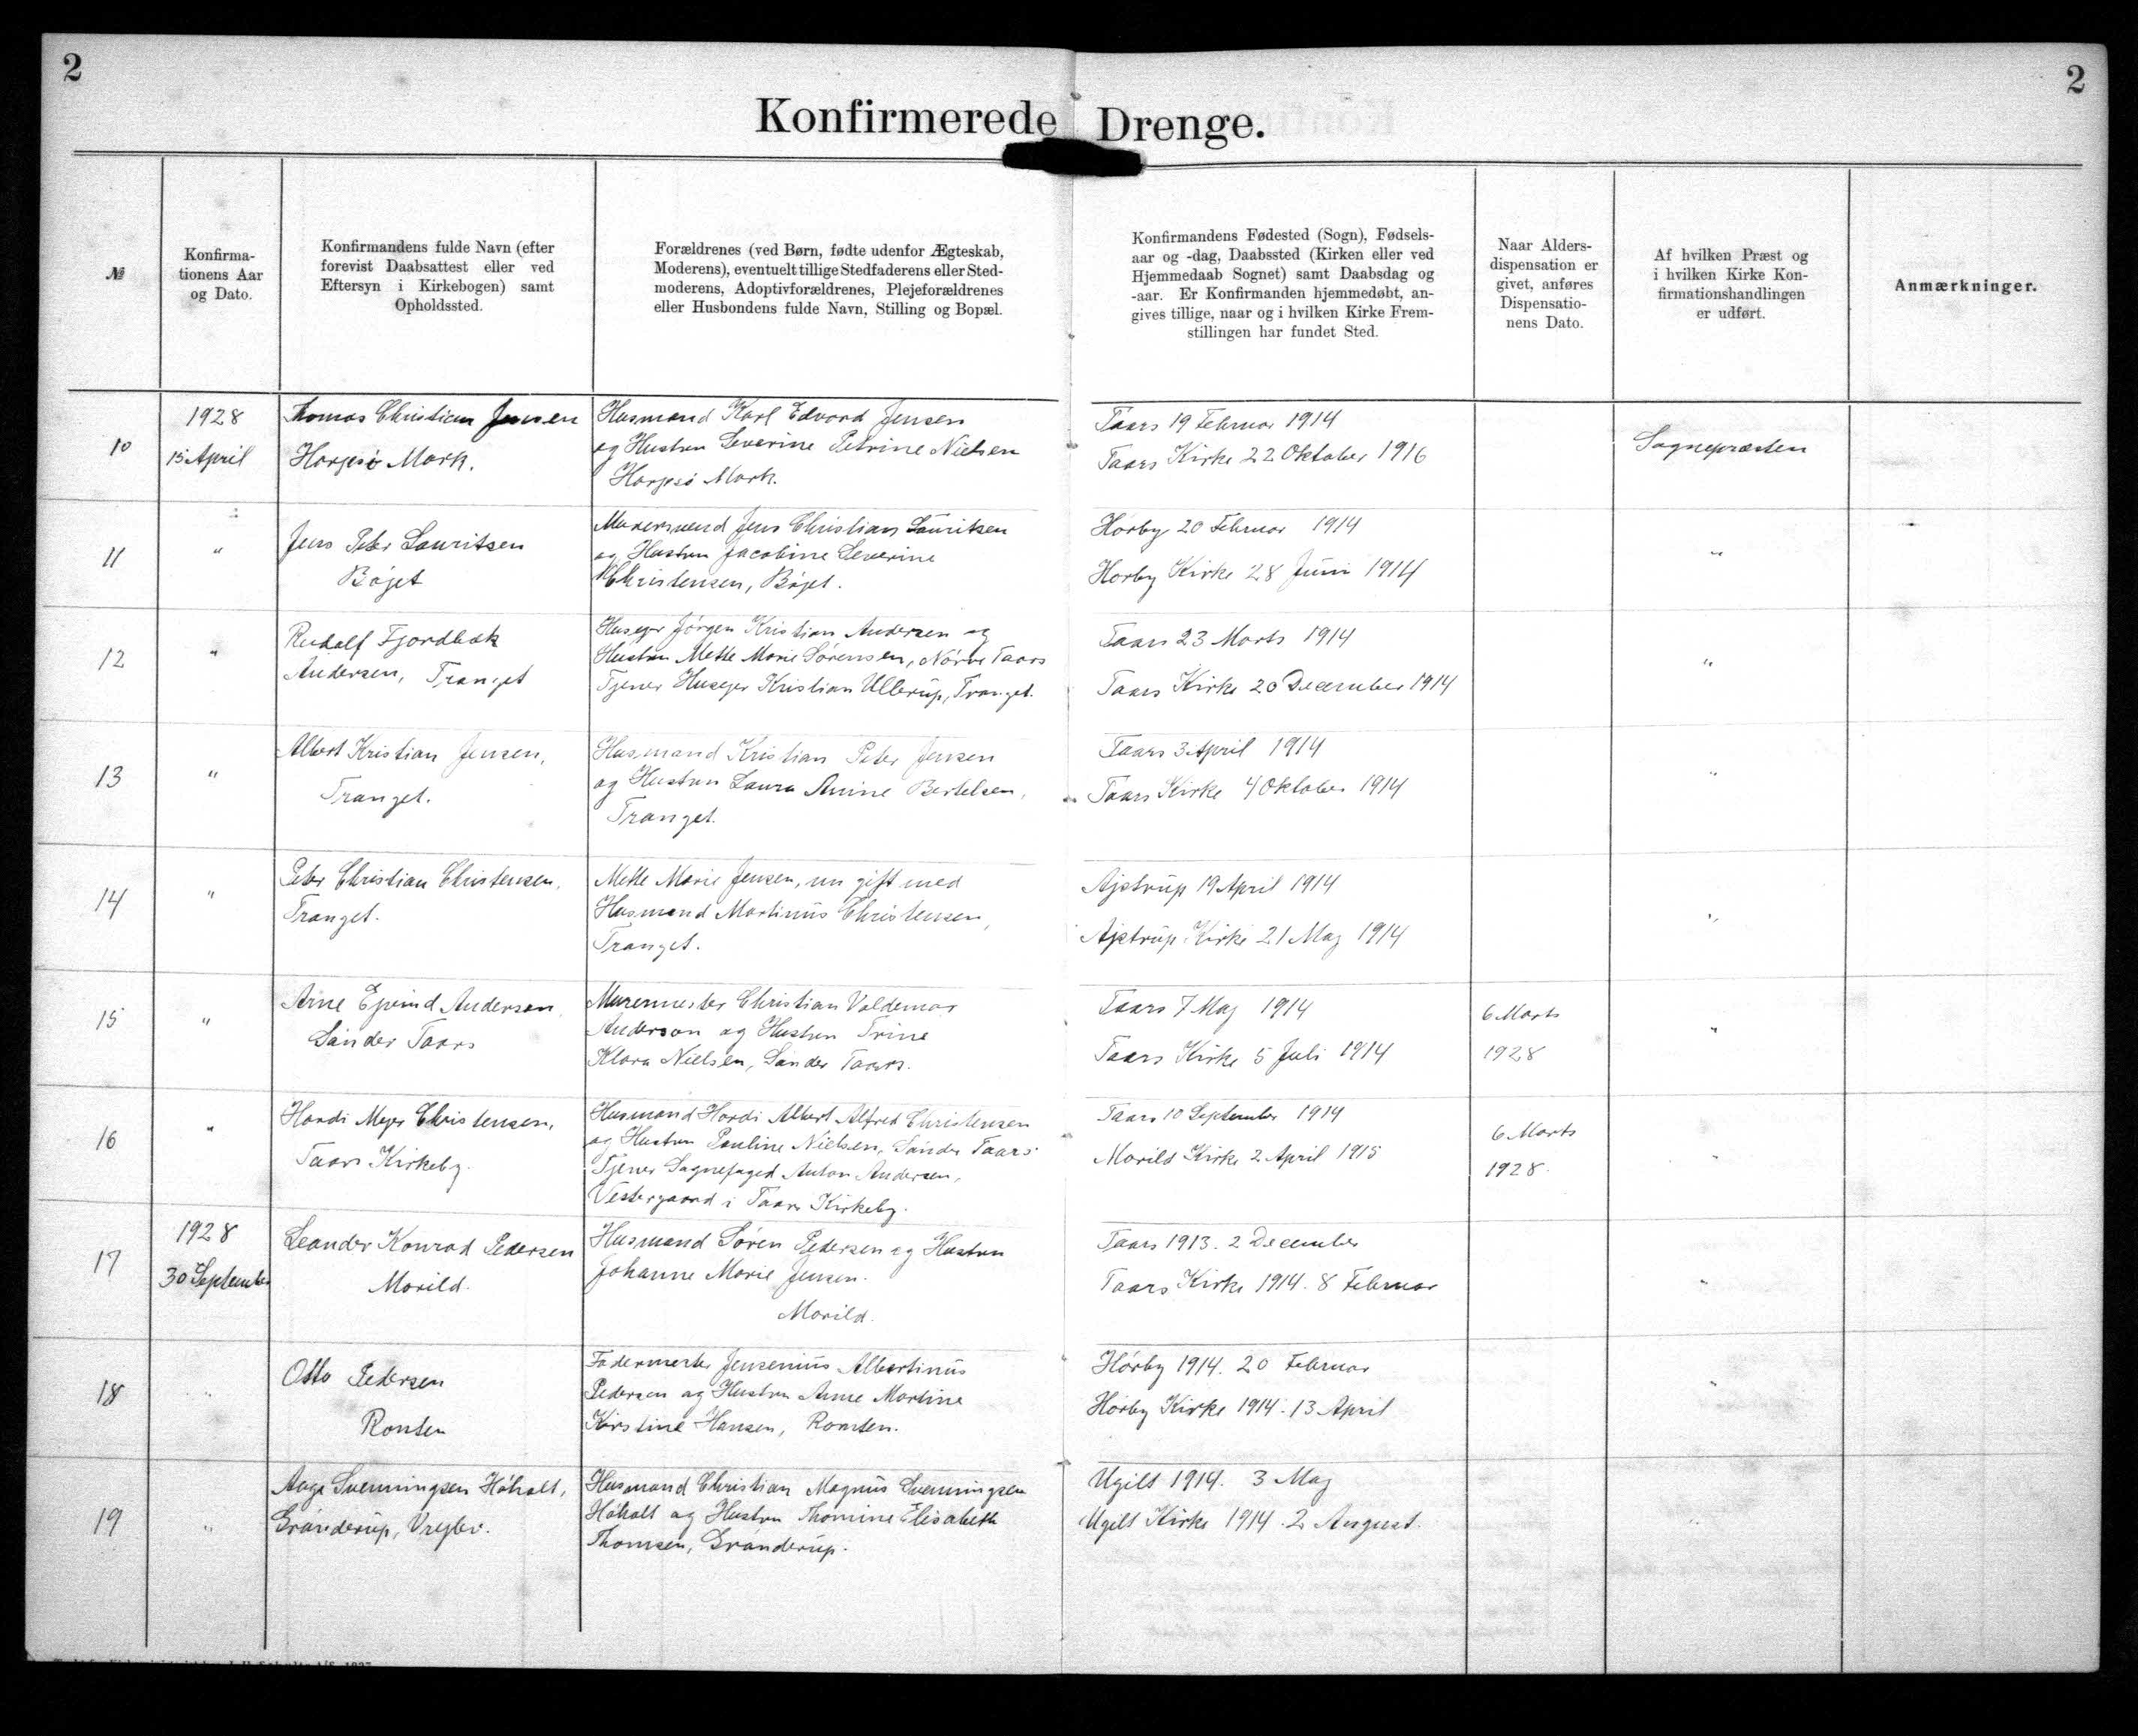 2
2
Konfirmerede Drenge.
№
Konfirma-
tionens Aar
og Dato.
Konfirmandens fulde Navn (efter
forevist Daabsattest eller ved
Eftersyn i Kirkebogen) samt
Opholdssted.
Forældrenes (ved Børn, fødte udenfor Ægteskab,
Moderens), eventuelt tillige Stedfaderens eller Sted-
moderens, Adoptivforældrenes, Plejeforældrenes
eller Husbondens fulde Navn, Stilling og Bopæl.
Konfirmandens Fødested (Sogn), Fødsels-
aar og -dag, Daabssted (Kirken eller ved
Hjemmedaab Sognet) samt Daabsdag og
-aar. Er Konfirmanden hjemmedøbt, an-
gives tillige, naar og i hvilken Kirke Frem-
stillingen har fundet Sted.
Naar Alders-
dispensation er
givet, anføres
Dispensatio-
nens Dato.
Af hvilken Præst og
i hvilken Kirke Kon-
firmationshandlingen
er udført.
Anmærkninger.
10
1928
15 April
Thomas Christian Jensen
Harjesø Mark.
Husmand Karl Edvard Jensen
og Hustru Severine Petrine Nielsen
Harjesø Mark.
Taars 19 Februar 1914
Taars Kirke 22 Oktober 1916
Sognepræsten
11
"
Jens Peter Lauritsen
Bøjet
Murersvend Jens Christian Lauritsen
og Hustru Jacobine Severine
Christensen, Bøjet.
Hørby 20 Februar 1914
Hørby Kirke 28 Juni 1914
"
12
"
Rudolf Fjordbak
Andersen, Tranget
Husejer Jørgen Kristian Andersen og
Hustru Mette Marie Sørensen, Nørre Taars
Tjener Husejer Kristian Ullerup, Tranget.
Taars 23 Marts 1914
Taars Kirke 20 December 1914
"
13
"
Albert Kristian Jensen,
Tranget.
Husmand Kristian Peter Jensen
og Hustru Laura Anine Bertelsen,
Tranget.
Taars 3 April 1914
Taars Kirke 4 Oktober 1914
"
14
"
Peter Christian Christensen,
Tranget.
Mette Marie Jensen, nu gift med
Husmand Martinus Christensen,
Tranget.
Ajstrup 19 April 1914
Ajstrup Kirke 21 Maj 1914
"
15
"
Arne Ejvind Anderson,
Sønder Taars
Murermester Christian Valdemar
Anderson og Hustru Trine
Klara Nielsen, Sønder Taars.
Taars 7 Maj 1914
Taars Kirke 5 Juli 1914
6 Marts
1928
"
16
"
Hardi Mejer Christensen,
Taars Kirkeby.
Husmand Hardi Albert Alfred Christensen
og Hustru Pauline Nielsen, Sønder Taars
Tjener Sognefoged Anton Andersen,
Vestergaard i Taars Kirkeby.
Taars 10 September 1914
Morild Kirke 2 April 1915
6 Marts
1928.
"
17
1928
30 September
Leander Konrad Pedersen
Morild.
Husmand Søren Pedersen og Hustru
Johanne Marie Jensen.
Morild.
Taars 1913. 2 December
Taars Kirke 1914. 8 Februar
"
18
"
Otto Pedersen
Ronten
Fodermester Jensenius Albertinus
Pedersen og Hustru Anne Martine
Kirstine Hansen, Ronten.
Hørby 1914. 20 Februar
Hørby Kirke 1914. 13 April
"
19
"
Aage Svenningsen Høholt,
Grønderup, Vrejlev.
Husmand Christian Magnus Svenningsen
Høholt og Hustru Thomine Elisabeth
Thomsen, Grønderup.
Ugilt 1914. 3 Maj
Ugilt Kirke 1914. 2 August.
"